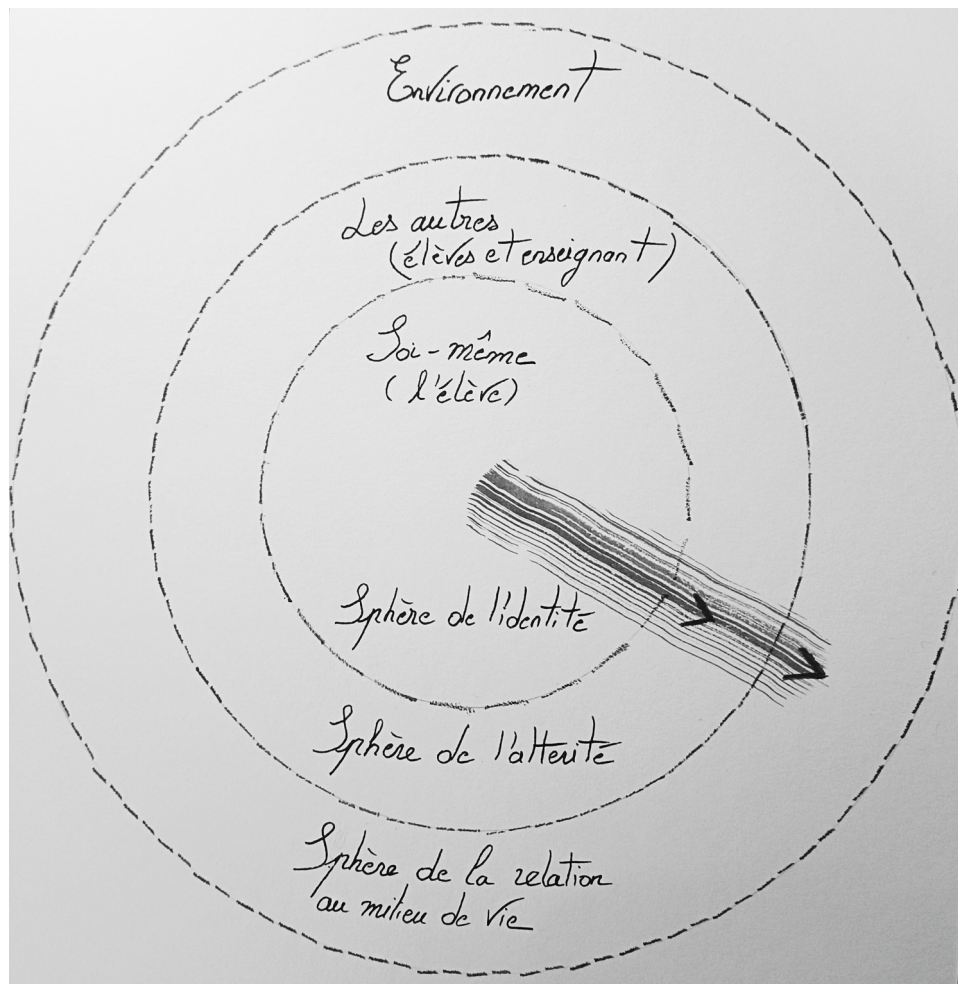 Environnement
Les autres
(élèves et enseignant)
Soi-même
(l'élève)
Sphère de l'identité
Sphère de l'altérité
Sphère de la relation
au milieu de vie